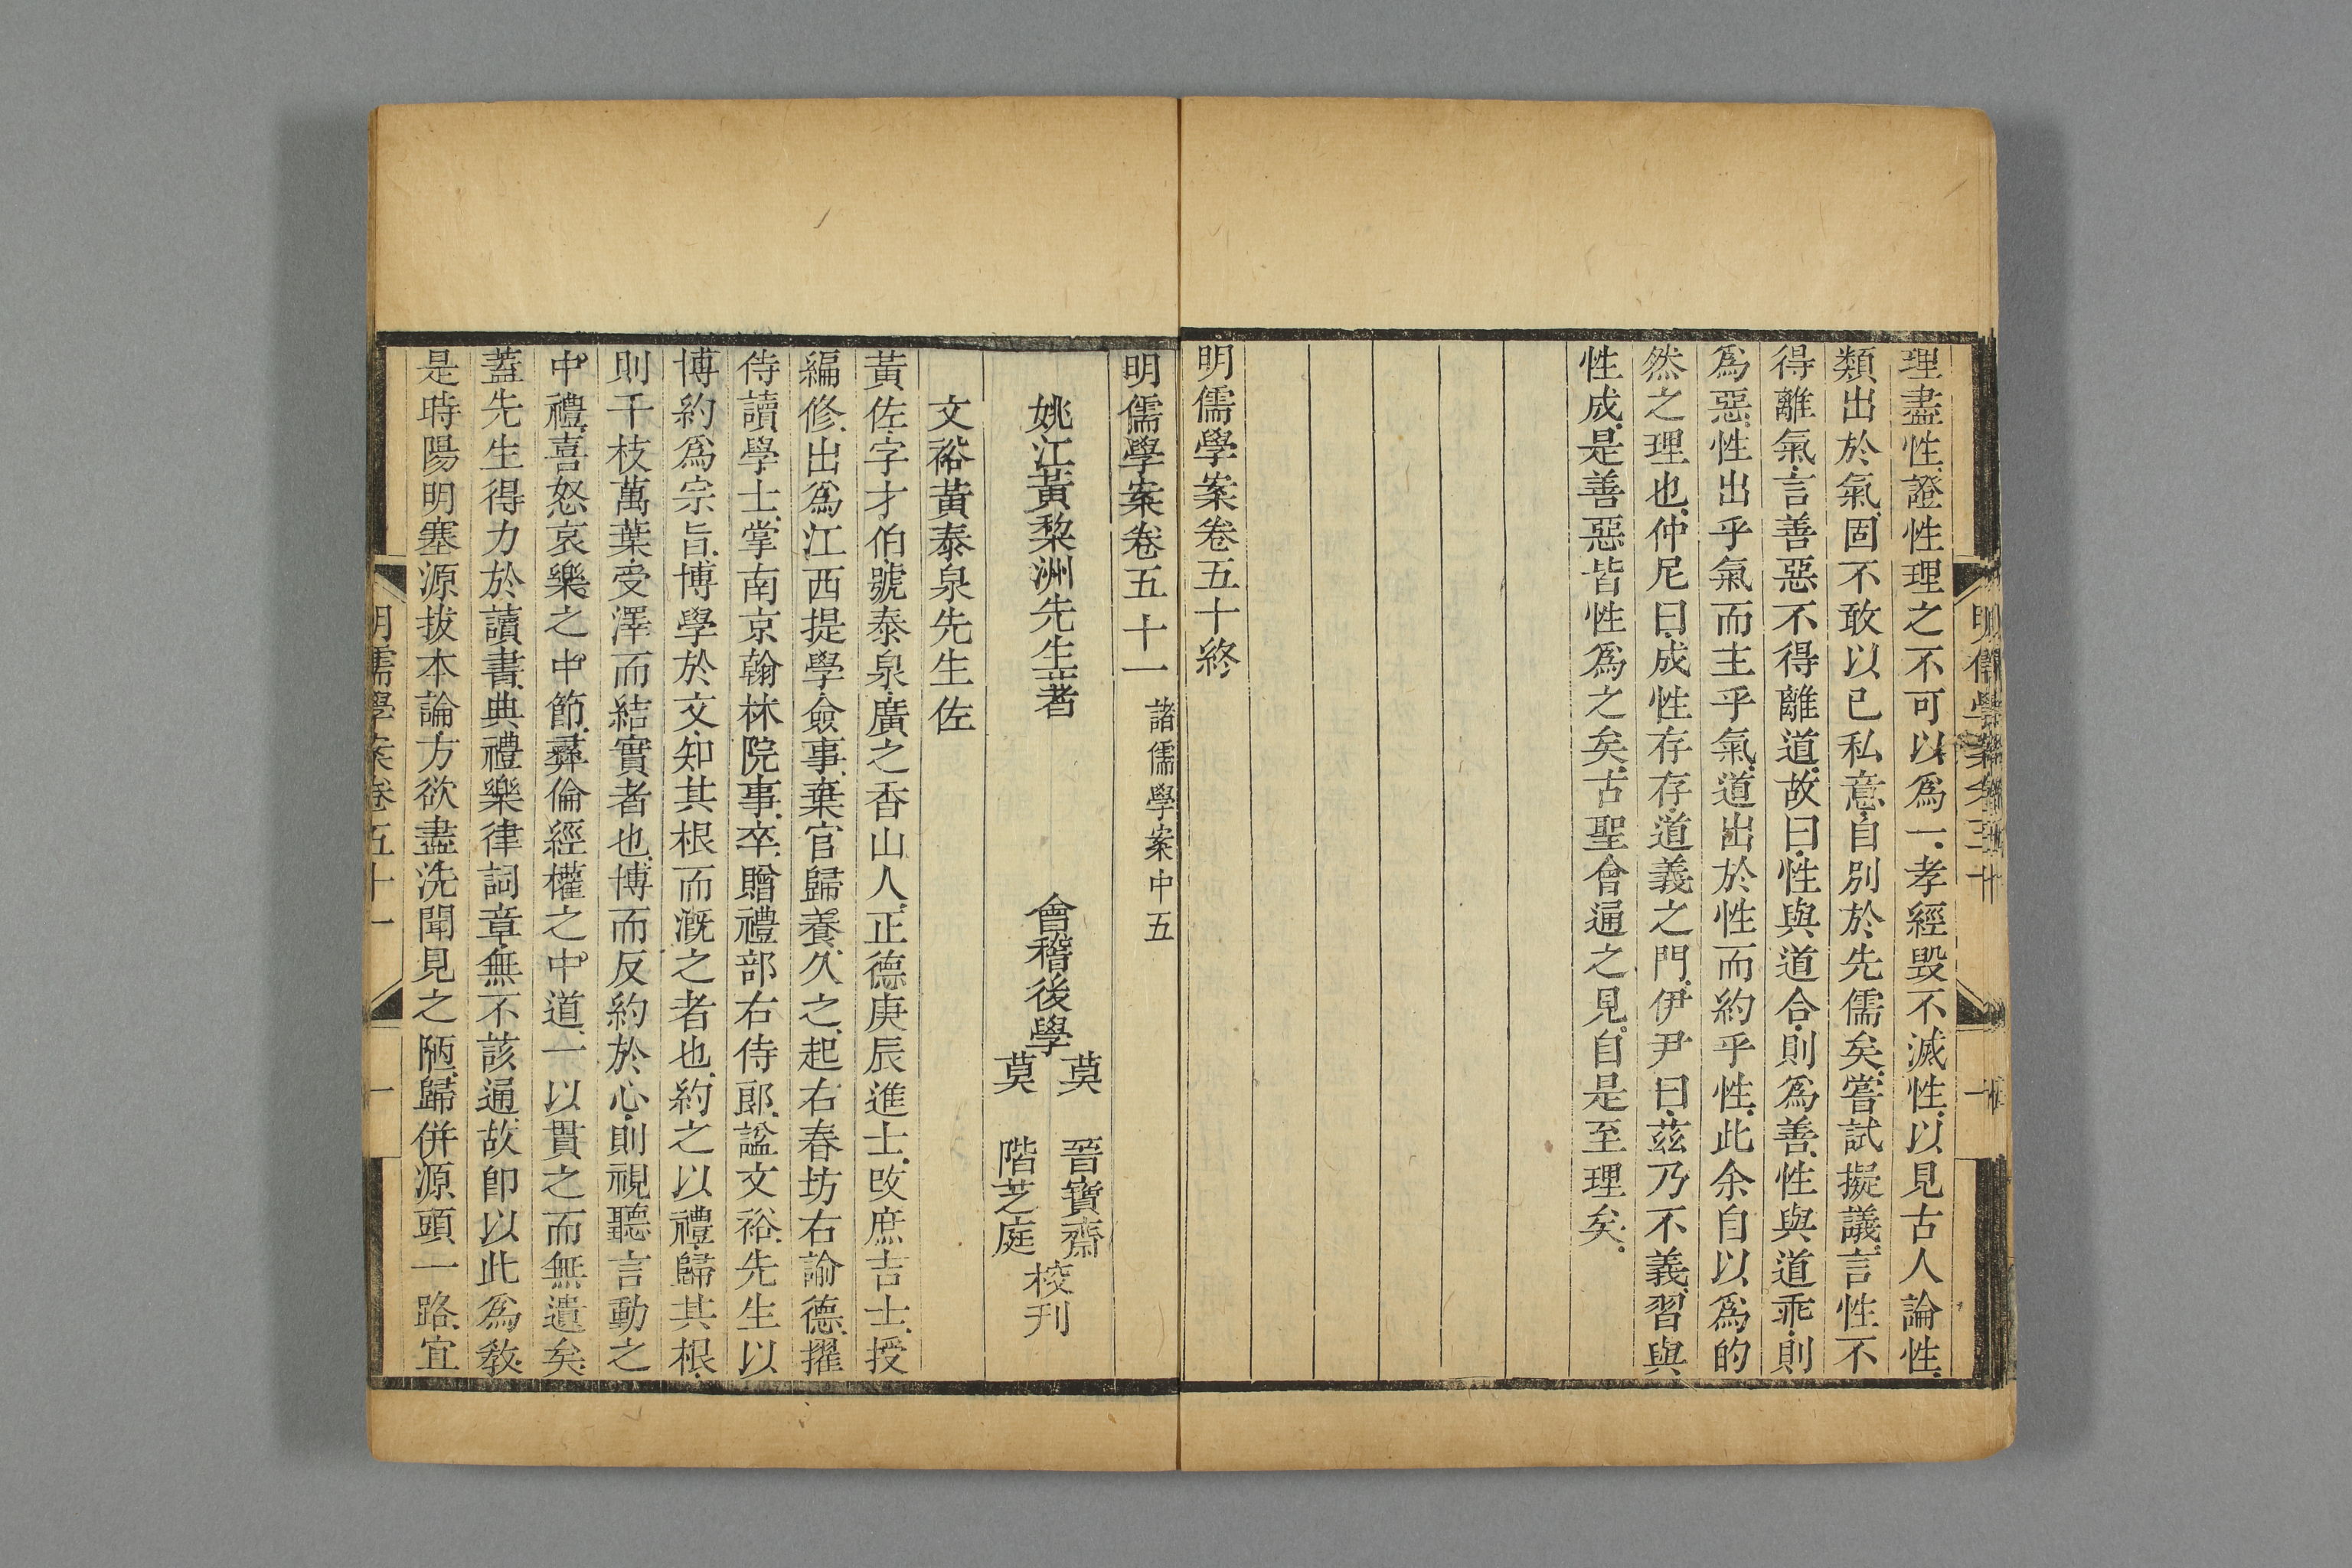 理盡性、證性理之不可以爲一、孝經毀不滅性、以見古人論性、
類出於氣、固不敢以已私意、自別於先儒矣、嘗試擬議、言性不
得離氣、言善惡不得離道、故曰、性與道合、則爲善、性與道乖、則
爲惡、性出乎氣而主乎氣、道出於性而約乎性、此余自以爲的
然之理也、仲尼曰、成性存存、道義之門、伊尹曰、茲乃不義、習與
性成、是善惡皆性爲之矣、古聖會通之見、自是至理矣、
明儒學案卷五十終
明儒學案卷五十一 諸儒學案中五
姚江黃棃洲先生著 會稽後學 莫 晉寶齋 莫 階芝庭 校刊
文裕黃泰泉先生佐
黃佐、字才伯、號泰泉、廣之香山人、正德庚辰進士、改庶吉士、授
編修、出爲江西提學僉事、棄官歸養、久之、起右春坊右諭德、擢
侍讀學士、掌南京翰林院事、卒、贈禮部右侍郎、諡文裕、先生以
博約爲宗旨、博學於文、知其根而漑之者也、約之以禮、歸其根、
則千枝萬葉、受澤而結實者也、博而反約於心、則視聽言動之
中禮、喜怒哀樂之中節、彝倫經權之中道、一以貫之而無遺矣、
蓋先生得力於讀書、典禮樂律詞章、無不該通、故卽以此爲敎、
是時陽明塞源拔本論、方欲盡洗聞見之陋、歸併源頭一路、宜
明儒學案卷五十一
一